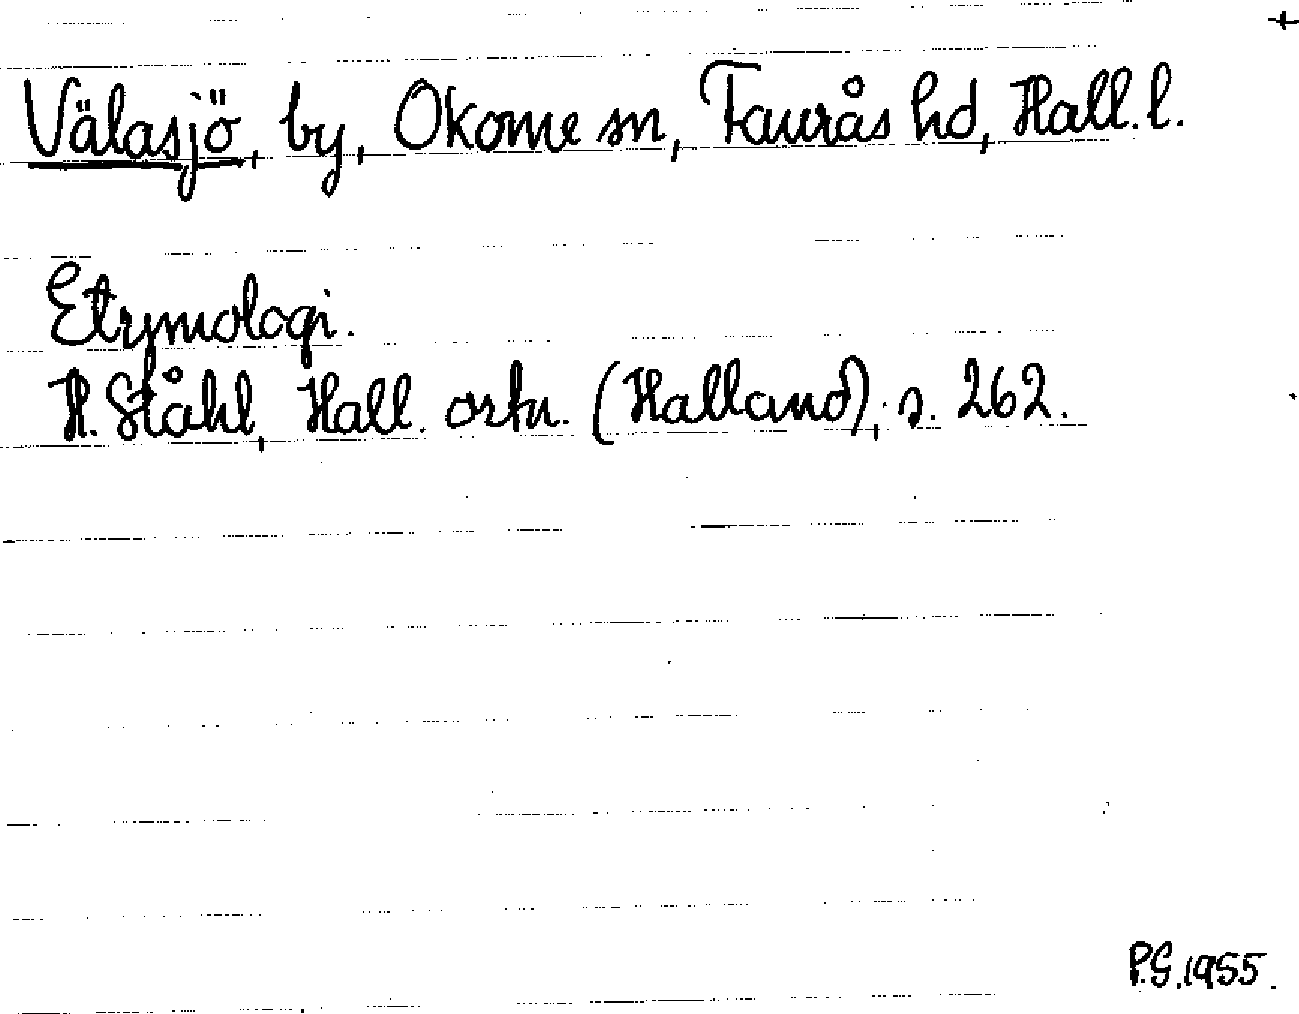 +
Välasjö, by, Okome sn, Faurås hd, Hall. l.
Etymologi.
H. Ståhl, Hall. ortn. (Halland), s. 262.
P.G. 1955.